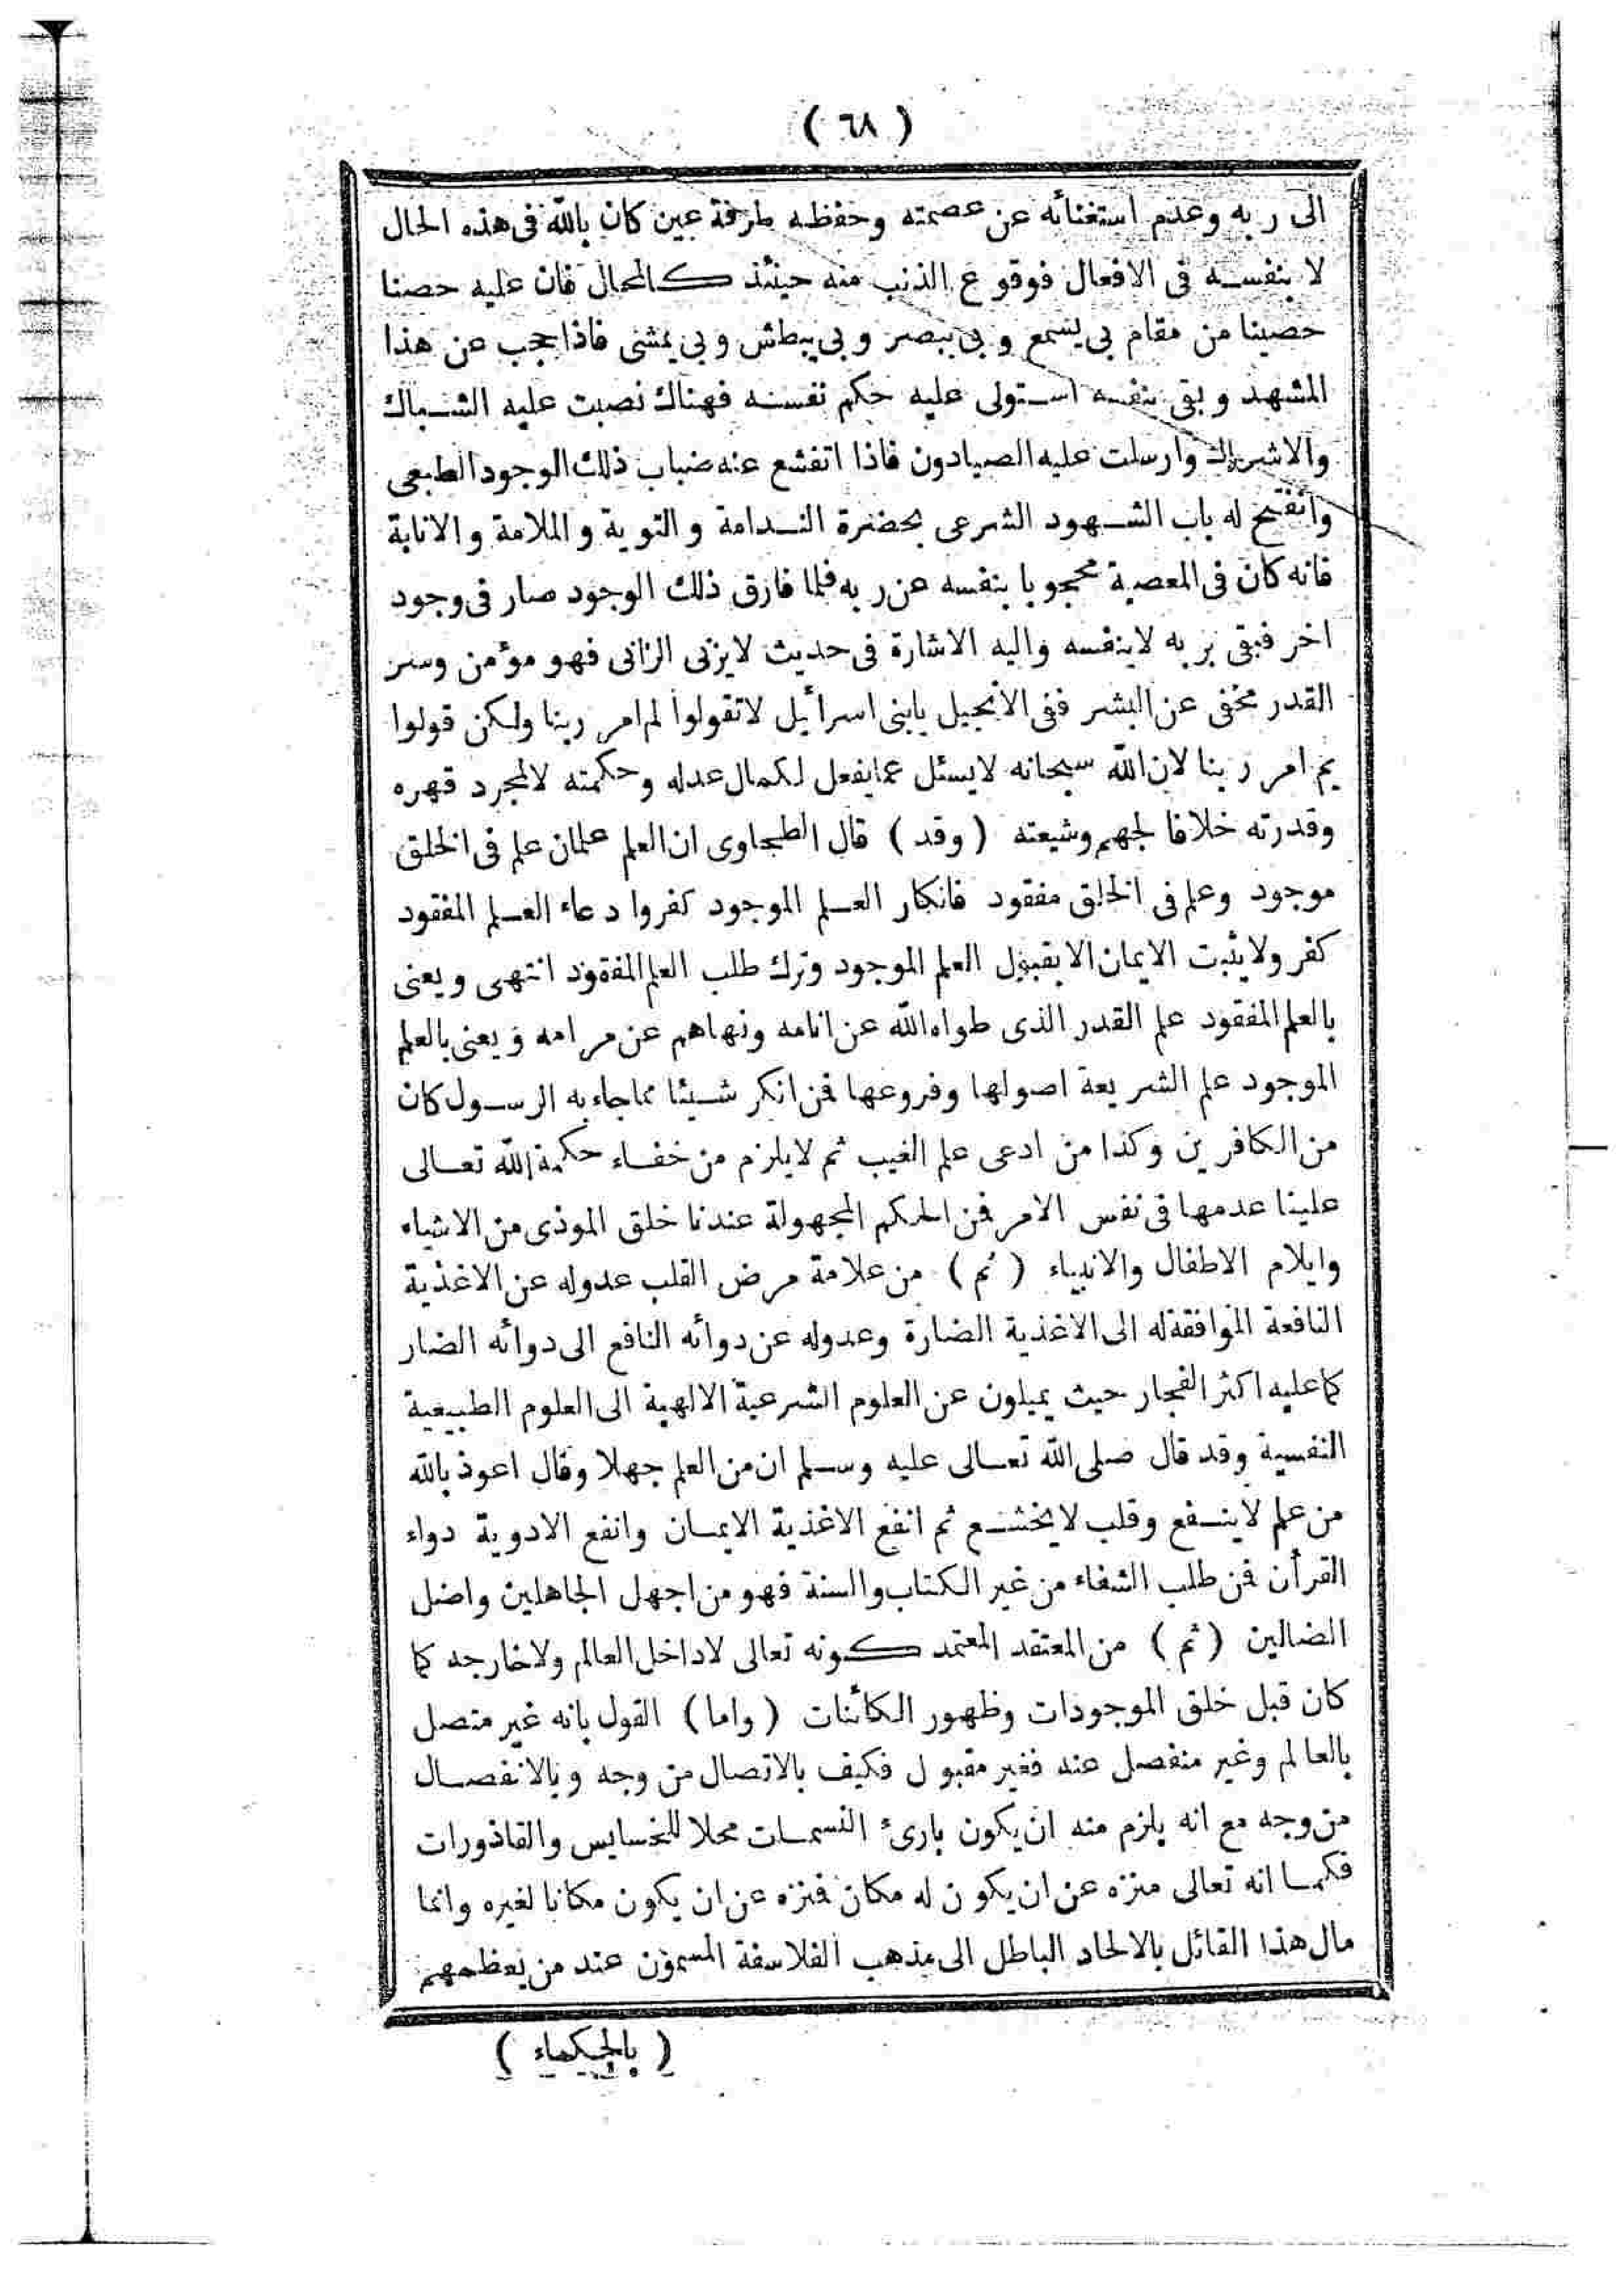 ( ٦٨ )
الى ربه وعدم استغنائه عن عصمته وحفظه طرفة عين كان بالله فى هذه الحال
لا بنفسه فى الافعال فوقوع الذنب منه حينئذ كالمحال فان عليه حصنا
حصينا من مقام بى يسمع وبى يبصر وبى يبطش وبى يمشى فاذا حجب عن هذا
المشهد وبقى بنفسه استولى عليه حكم نفسه فهناك نصبت عليه الشباك
والاشراك وارسلت عليه الصيادون فاذا انقشع عنه ضباب ذلك الوجود الطبعى
وانفتح له باب الشهود الشرعى بحضرة الندامة والتوبة والملامة والانابة
فانه كان فى المعصية محجوبا بنفسه عن ربه فلما فارق ذلك الوجود صار فى وجود
اخر فبقى بربه لا بنفسه واليه الاشارة فى حديث لا يزنى الزانى فهو مؤمن وسر
القدر مخفى عن البشر ففى الانجيل يابنى اسرائيل لا تقولوا لم امر ربنا ولكن قولوا
بم امر ربنا لان الله سبحانه لا يسئل عما يفعل لكمال عدله وحكمته لا لمجرد قهره
وقدرته خلافا لجهم وشيعته ( وقد ) قال الطحاوى ان العلم علمان علم فى الخلق
موجود وعلم فى الخلق مفقود فانكار العلم الموجود كفروا دعاء العلم المفقود
كفر ولا يثبت الايمان الا بقبول العلم الموجود وترك طلب العلم المفقود انتهى ويعنى
بالعلم المفقود علم القدر الذى طواه الله عن انامه ونهاهم عن مرامه ويعنى بالعلم
الموجود علم الشريعة اصولها وفروعها فمن انكر شيئا مما جاء به الرسول كان
من الكافرين وكذا من ادعى علم الغيب ثم لا يلزم من خفاء حكمة الله تعالى
علينا عدمها فى نفس الامر فمن الحكم المجهولة عندنا خلق الموذى من الاشياء
وايلام الاطفال والانبياء ( ثم ) من علامة مرض القلب عدوله عن الاغذية
النافعة الموافقة له الى الاغذية الضارة وعدوله عن دوائه النافع الى دوائه الضار
كما عليه اكثر الفجار حيث يميلون عن العلوم الشرعية الالهية الى العلوم الطبيعية
النفسية وقد قال صلى الله تعالى عليه وسلم ان من العلم جهلا وقال اعوذ بالله
من علم لا ينفع وقلب لا يخشع ثم انفع الاغذية الايمان وانفع الادوية دواء
القرأن فمن طلب الشفاء من غير الكتاب والسنة فهو من اجهل الجاهلين واضل
الضالين ( ثم ) من المعتقد المعتمد كونه تعالى لا داخل العالم ولا خارجه كما
كان قبل خلق الموجودات وظهور الكائنات ( واما ) القول بانه غير متصل
بالعالم وغير منفصل عنه فغير مقبول فكيف بالاتصال من وجه وبالانفصال
من وجه مع انه يلزم منه ان يكون بارئ النسمات محلا للخسايس والقاذورات
فكما انه تعالى منزه عن ان يكون له مكان فنزه عن ان يكون مكانا لغيره وانما
مال هذا القائل بالالحاد الباطل الى مذهب الفلاسفة المسمون عند من يعظمهم
( بالحكماء )